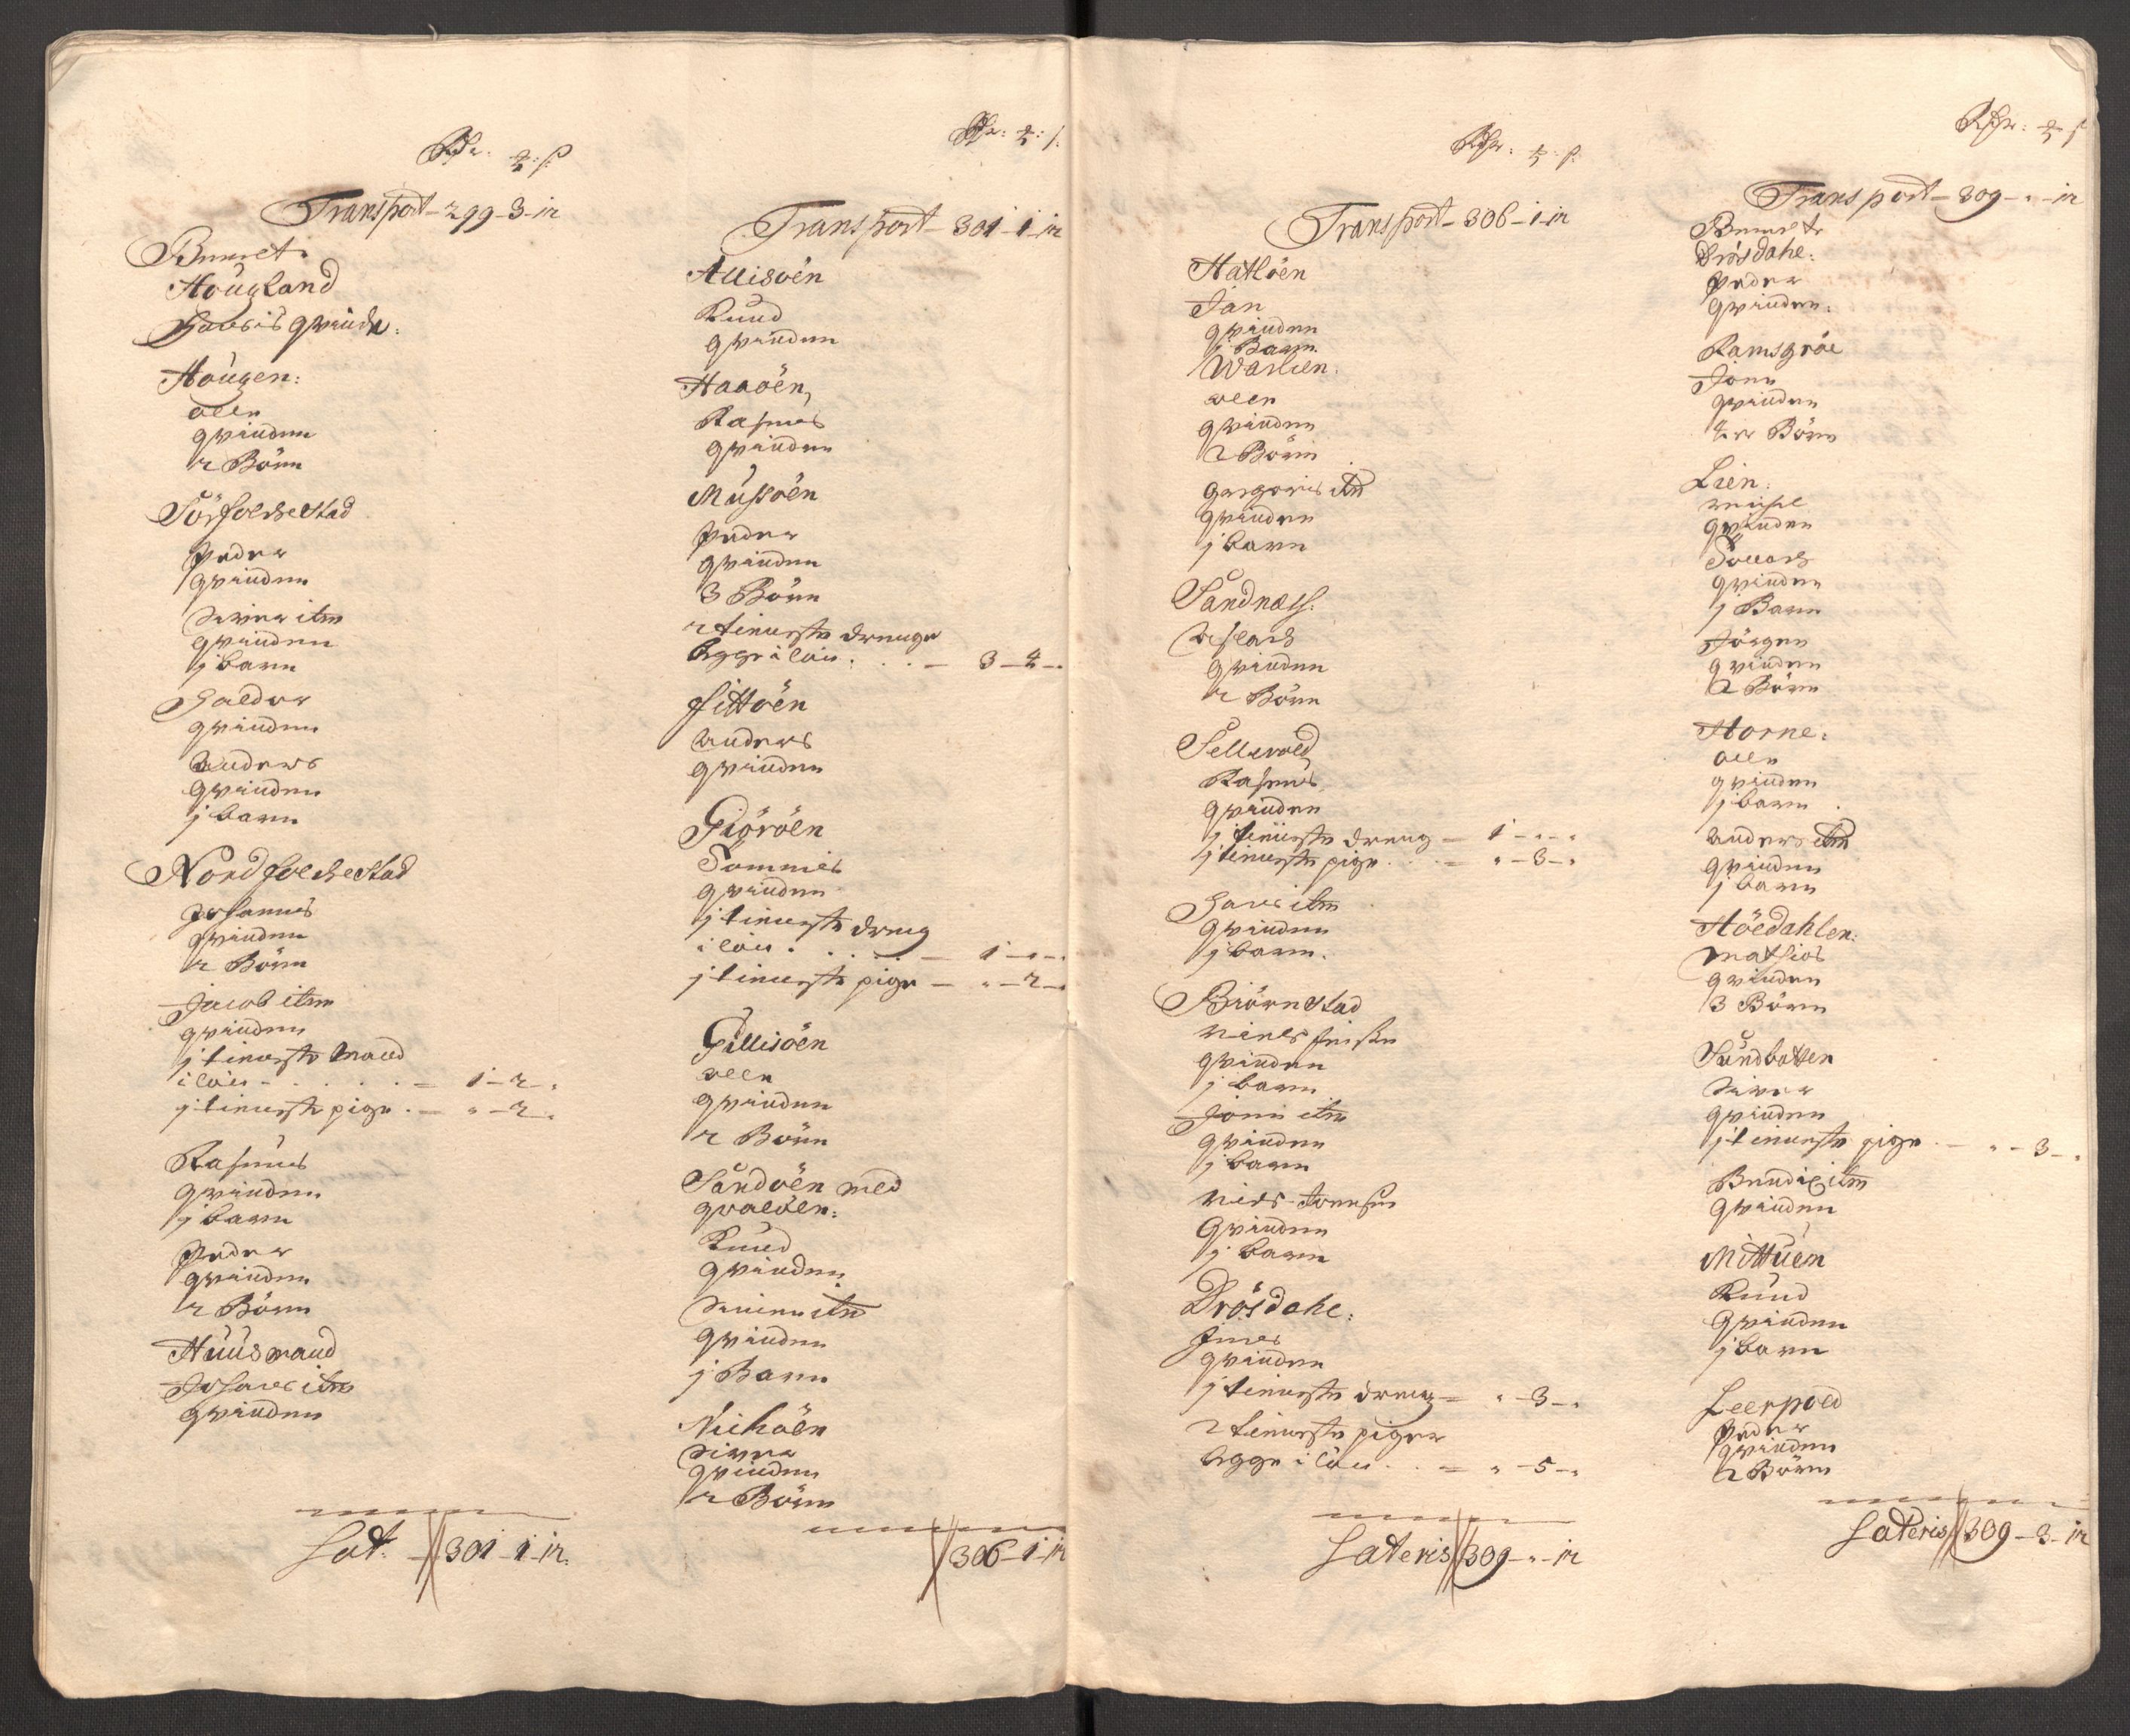 Rdr: ꝶ: ß:
Transport - 299 - 3 - 12
Bremet
Hougland
Hansis qvinde:
Hougen:
olle
qvinden
2 Börn
Sörfolchestad
Peder
qvinden
Siver itm
qvinden
j barn
Haldor
qvinden
Anders
qvinden
j barn
Nordfolchestad
Johannes
qvinden
2 Börn
Jacob itm
qvinden
j tieneste Mand
i lön - 1 - 2 -
j tieneste pige - " - 2 -
Rasmus
qvinden
j barn
Peder
qvinden
2 Börn
Huusmand
Johanes itm
qvinden
Lat: 301 - 1 - 12
Rdr: ꝶ: ß:
Transport - 301 - 1 - 12
Allisöen
Knud
qvinden
Haaöen
Rasmus
qvinden
Mussöen
Peder
qvinden
3 Börn
2 tieneste drenge
begge i lön - 3 - 4 -
Fittöen
Anders
qvinden
Giöröen
Tommes
qvinden
j tieneste dreng
i lön - 1 - " -
j tieneste pige - " - 2 -
Gillisöen
olle
qvinden
2 Börn
Sandöen med
qvalöen:
Knud
qvinden
itm
qvinden
j Barn
Nichöen
Siver
qvinden
2 Börn
306 - 1 - 12
Rdr: ꝶ: ß:
Transport - 306 - 1 - 12
Hatlöen
Jan
qvinden
j Barn
Warlien
olle
qvinden
2 Börn
Gregoris itm
qvinden
j barn
Sandness:
Aslach
qvinden
2 Börn
Sellevold
Rasmus
qvinden
j tieneste dreng - 1 - " - "
j tieneste pige - " - 3 - "
Hans itm
qvinden
j barn.
Biörnestad
Niels
qvinden
j barn
Jönn itm
qvinden
j barn
Niels Joensen
Qvinden
j barn
Drösdahe:
Jens
qvinden
j tieneste dreng - " - 3 - "
2 tieneste piger
begge i lön - " - 5 - "
Lateris 309 - " - 12
Rdr: ꝶ: ß
Transport - 309 - " - 12
Bremet
Drösdahe:
Peder
qvinden:
Ramsgröe
Jonn
qvinden
Börn
Lien:
Michel
qvinden
Sollach
qvinden
j Barn
Jörgen
qvinden
2 Börn
Horne:
olle
qvinden
j barn
Anders itm
qvinden
j barn
Höedahlen:
Mathios
qvinden
3 Börn
Sundbotten
Siver
qvinden
j tieneste pige - " - 3 - "
Bendix itm
Qvinden
Mittuem
Knud
Qvinden
j barn
Leerpold
Peder
qvinden
2 Börn
Lateris 309 - 3 - 12